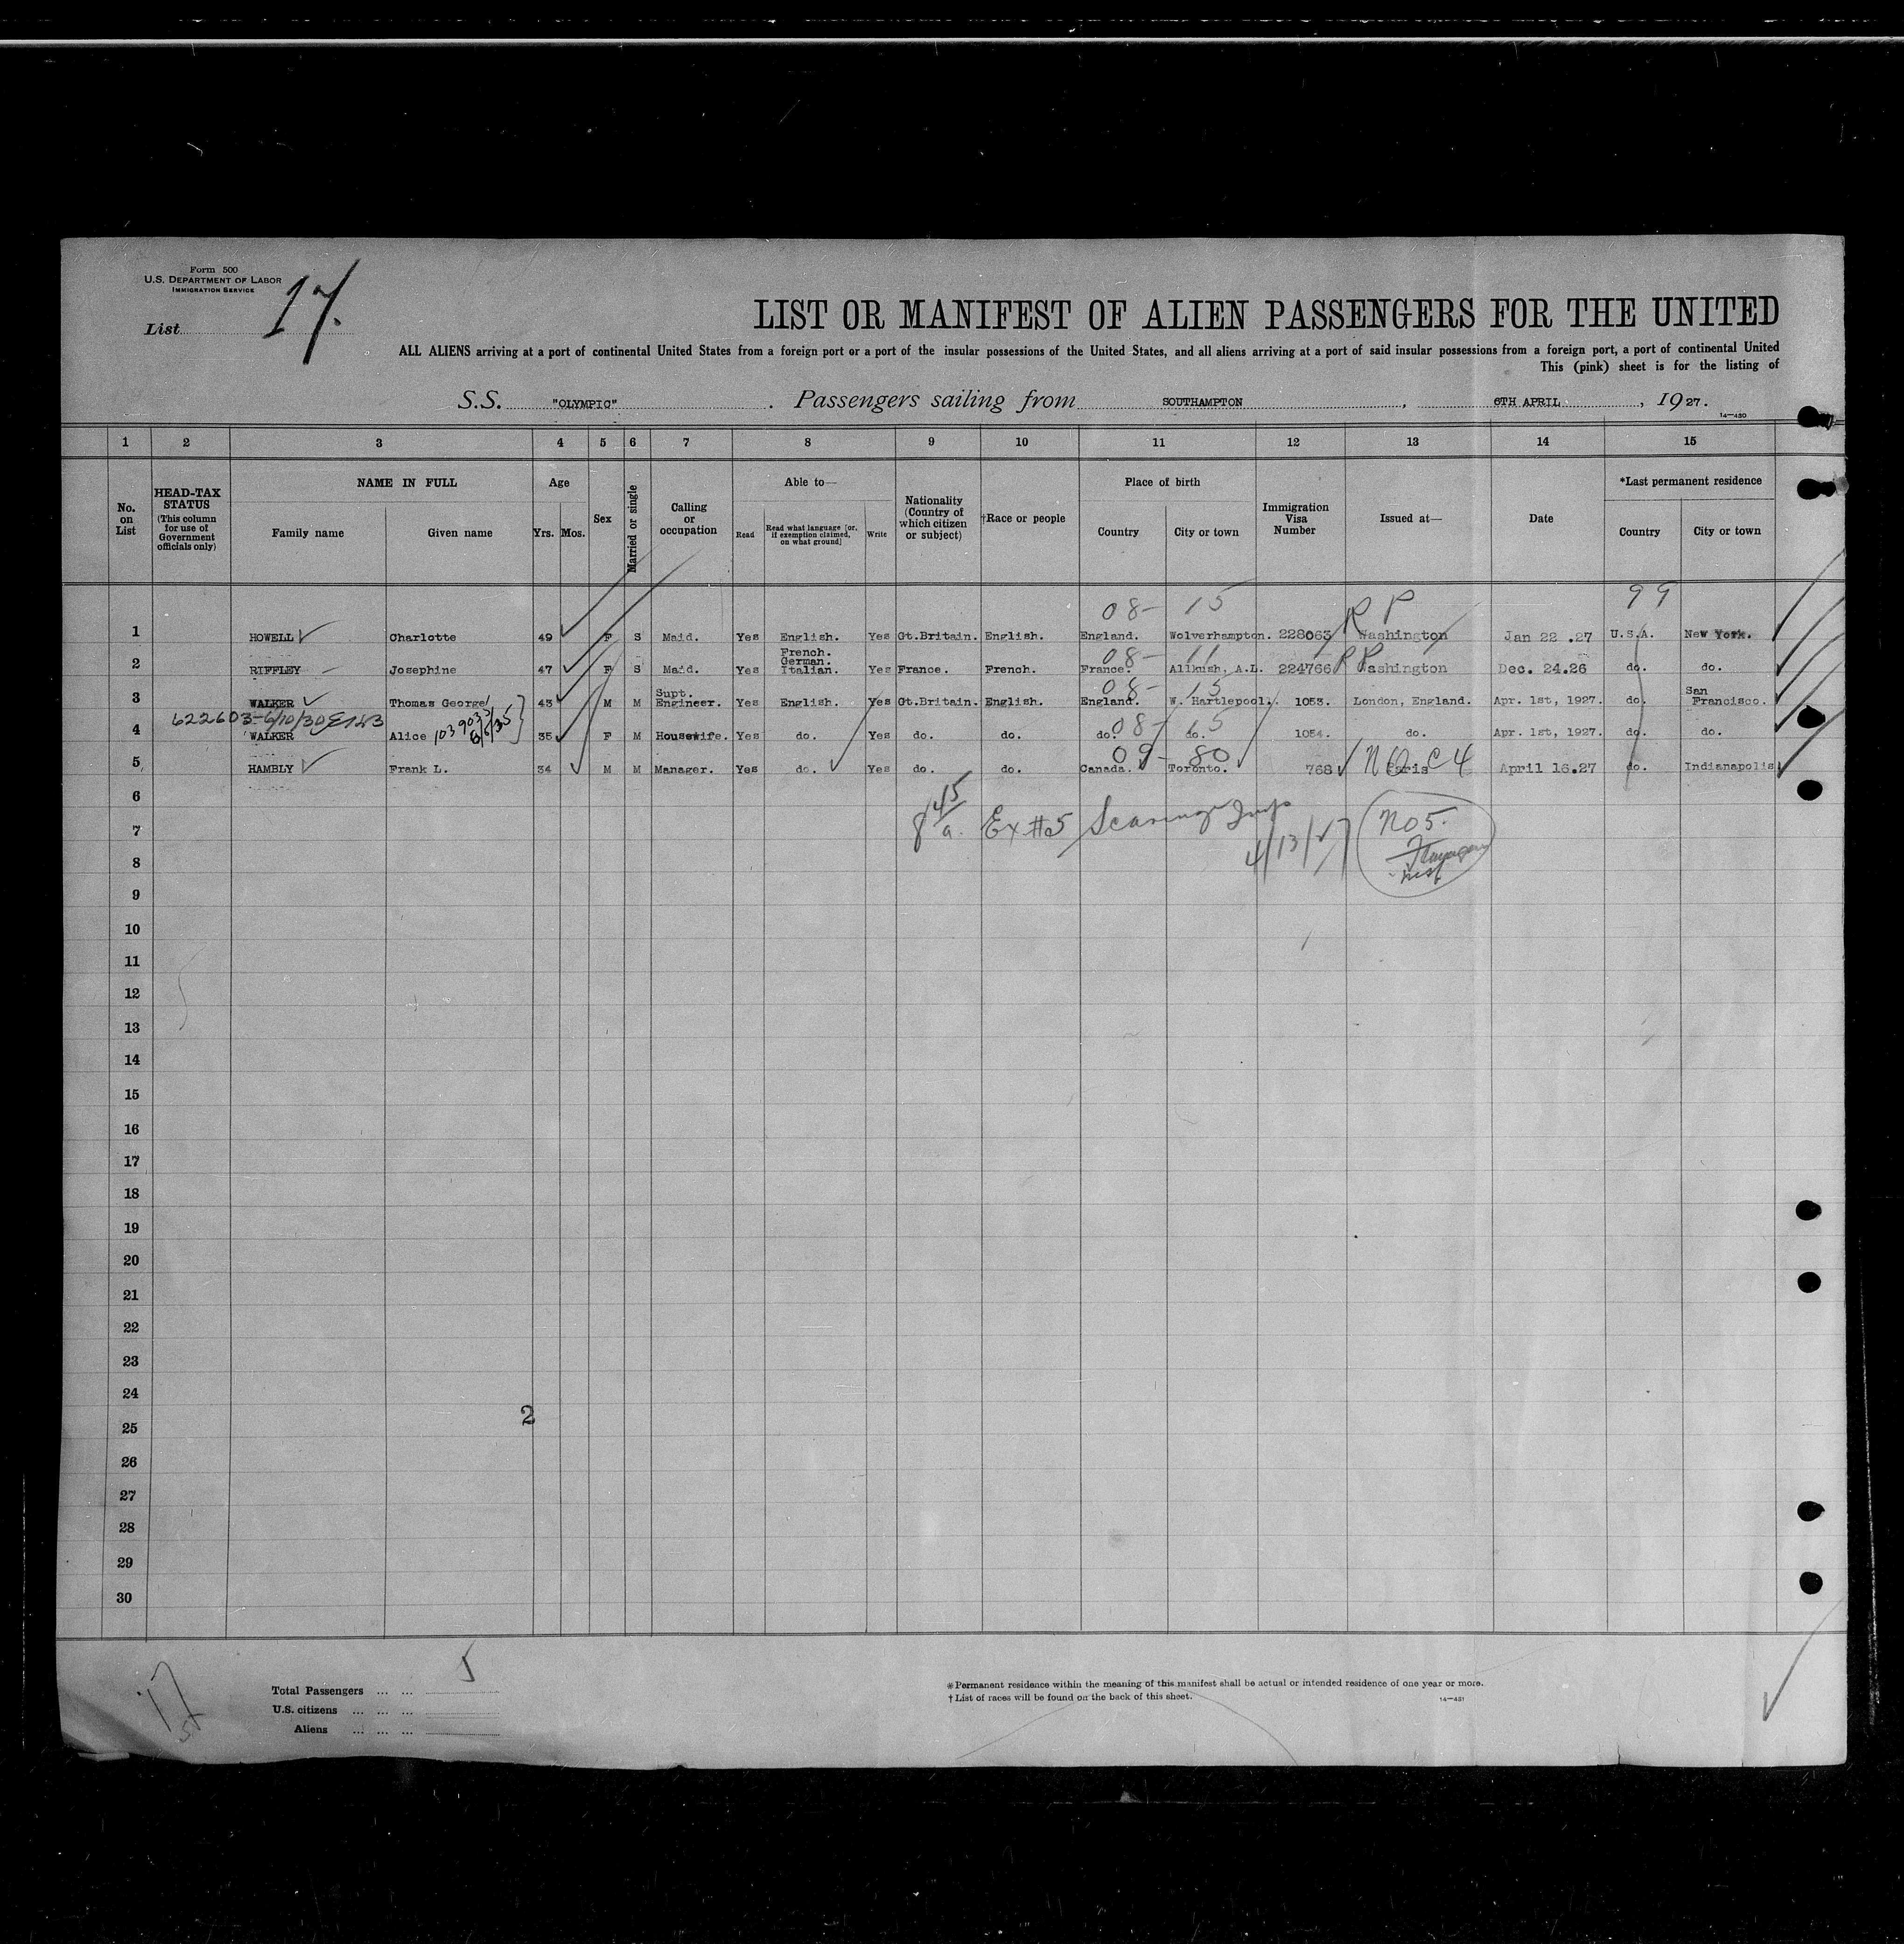 Form 500
U.S. DEPARTMENT OF LABOR
IMMIGRATION SERVICE
List 17.
LIST OR MANIFEST OF ALIEN PASSENGERS FOR THE UNITED
ALL ALIENS arriving at a port of continental United States from a foreign port or a port of the insular possessions of the United States, and all aliens arriving at a port of said insular possessions from a foreign port, a port of continental United
This (pink) sheet is for the listing of
S.S. "OLYMPIC". Passengers sailing from SOUTHAMPTON, 6TH APRIL, 1927.
14—430
1 2 3 4 5 6 7 8 9 10 11 12 13 14 15
No. on List
HEAD-TAX STATUS (This column for use of Government officials only)
NAME IN FULL
Family name Given name
Age
Yrs. Mos.
Sex
Married or single
Calling or occupation
Able to—
Read Read what language [or, if exemption claimed, on what ground] Write
Nationality (Country of which citizen or subject)
†Race or people
Place of birth
Country City or town
Immigration Visa Number
Issued at—
Date
*Last permanent residence
Country City or town
08- 15 R P 99
1 HOWELL Charlotte 49 F S Maid. Yes English. Yes Gt.Britain. English. England. Wolverhampton. 228063 Washington Jan 22 .27 U.S.A. New York.
08- 11 R P
2 RIFFLEY Josephine 47 F S Maid. Yes French. German. Italian. Yes France. French. France. Altkush, A.L. 224766 Washington Dec. 24.26 do. do.
08- 15
3 WALKER Thomas George 43 M M Supt. Engineer. Yes English. Yes Gt.Britain. English. England. W. Hartlepool. 1053. London, England. Apr. 1st, 1927. do. San Francisco.
622603-6/10/30 103903 6/6/35
08- 15
4 WALKER Alice 35 F M Housewife. Yes do. Yes do. do. do. do. 1054. do. Apr. 1st, 1927. do. do.
09- 80 N Q C 4
5 HAMBLY Frank L. 34 M M Manager. Yes do. Yes do. do. Canada. Toronto. 768 Paris April 16.27 do. Indianapolis
6
8 45/a. Ex #5 4/13/27 No 5.
7
8
9
10
11
12
13
14
15
16
17
18
19
20
21
22
23
24
2
25
26
27
28
29
30
17
Total Passengers ... ... 5
U.S. citizens ... ... ...
Aliens ... ... ...
*Permanent residence within the meaning of this manifest shall be actual or intended residence of one year or more.
†List of races will be found on the back of this sheet.
14—431